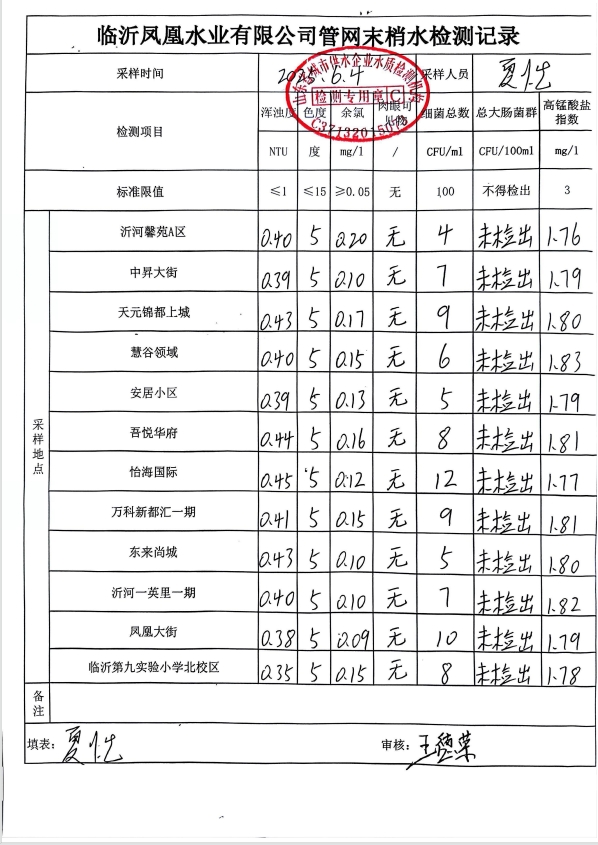 临沂凤凰水业有限公司管网末梢水检测记录
采样时间 2025.6.4 采样人员
检测专用章 C
C37132015078
检测项目 浑浊度 色度 余氯 肉眼可见物 细菌总数 总大肠菌群 高锰酸盐指数
NTU 度 mg/l / CFU/ml CFU/100ml mg/l
标准限值 ≤1 ≤15 ≥0.05 无 100 不得检出 3
采样地点
沂河馨苑A区 0.40 5 0.20 无 4 未检出 1.76
中昇大街 0.39 5 0.10 无 7 未检出 1.79
天元锦都上城 0.43 5 0.17 无 9 未检出 1.80
慧谷领域 0.40 5 0.15 无 6 未检出 1.83
安居小区 0.39 5 0.13 无 5 未检出 1.79
吾悦华府 0.44 5 0.16 无 8 未检出 1.81
怡海国际 0.45 5 0.12 无 12 未检出 1.77
万科新都汇一期 0.41 5 0.15 无 9 未检出 1.81
东来尚城 0.43 5 0.10 无 5 未检出 1.80
沂河一英里一期 0.40 5 0.10 无 7 未检出 1.82
凤凰大街 0.38 5 0.09 无 10 未检出 1.79
临沂第九实验小学北校区 0.35 5 0.15 无 8 未检出 1.78
备注
填表: 审核: